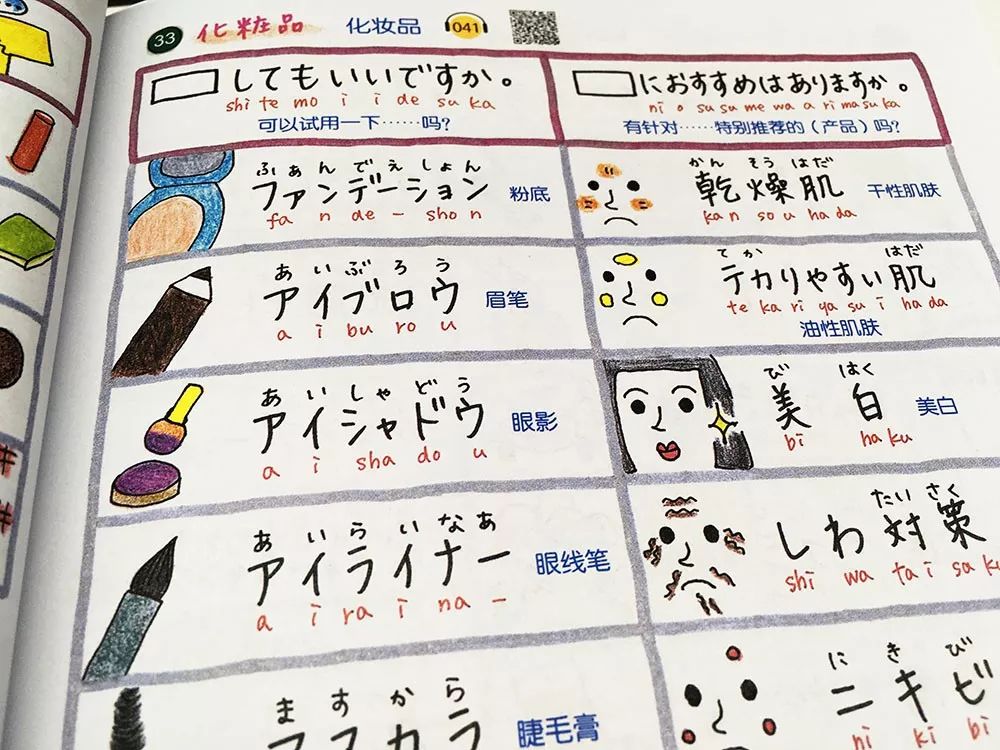 33 化粧品 化妆品 041
してもいいですか。
shi te mo i i de su ka
可以试用一下……吗?
におすすめはありますか。
ni o su su me wa a ri ma su ka
有针对……特别推荐的(产品)吗?
ふぁんでぇしょん
ファンデーション 粉底
fa n de - sho n
かん そう はだ
乾燥肌 干性肌肤
kan so u ha da
あいぶろう
アイブロウ 眉笔
a i bu ro u
てか はだ
テカりやすい肌
te ka ri ya su i ha da
油性肌肤
あいしゃどう
アイシャドウ 眼影
a i sha do u
び はく
美白 美白
bi haku
あいらいなあ
アイライナー 眼线笔
a i ra i na -
たい さく
しわ対策
shi wa ta i sa ku
ますから
マスカラ 睫毛膏
に き び
ニキビ
ni ki bi